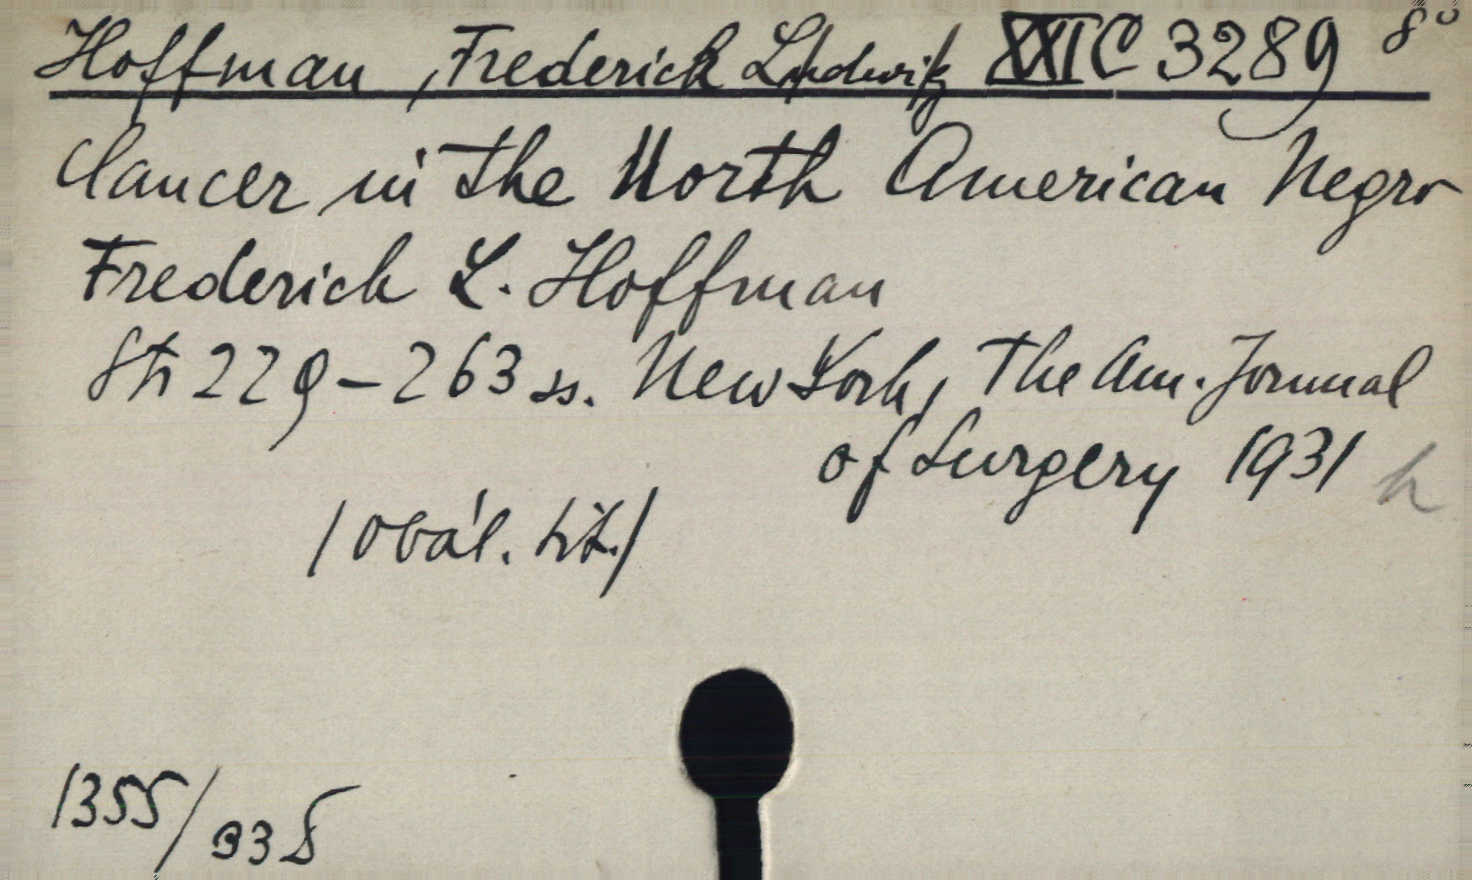 Hoffman, Frederick Ludwik XXI C 3289 8°
Cancer in the North American Negro
Frederick L. Hoffman
Str 229-263 ss. New York, The Am. Journal
of Surgery 1931 h
/obál. tit./
1355/335